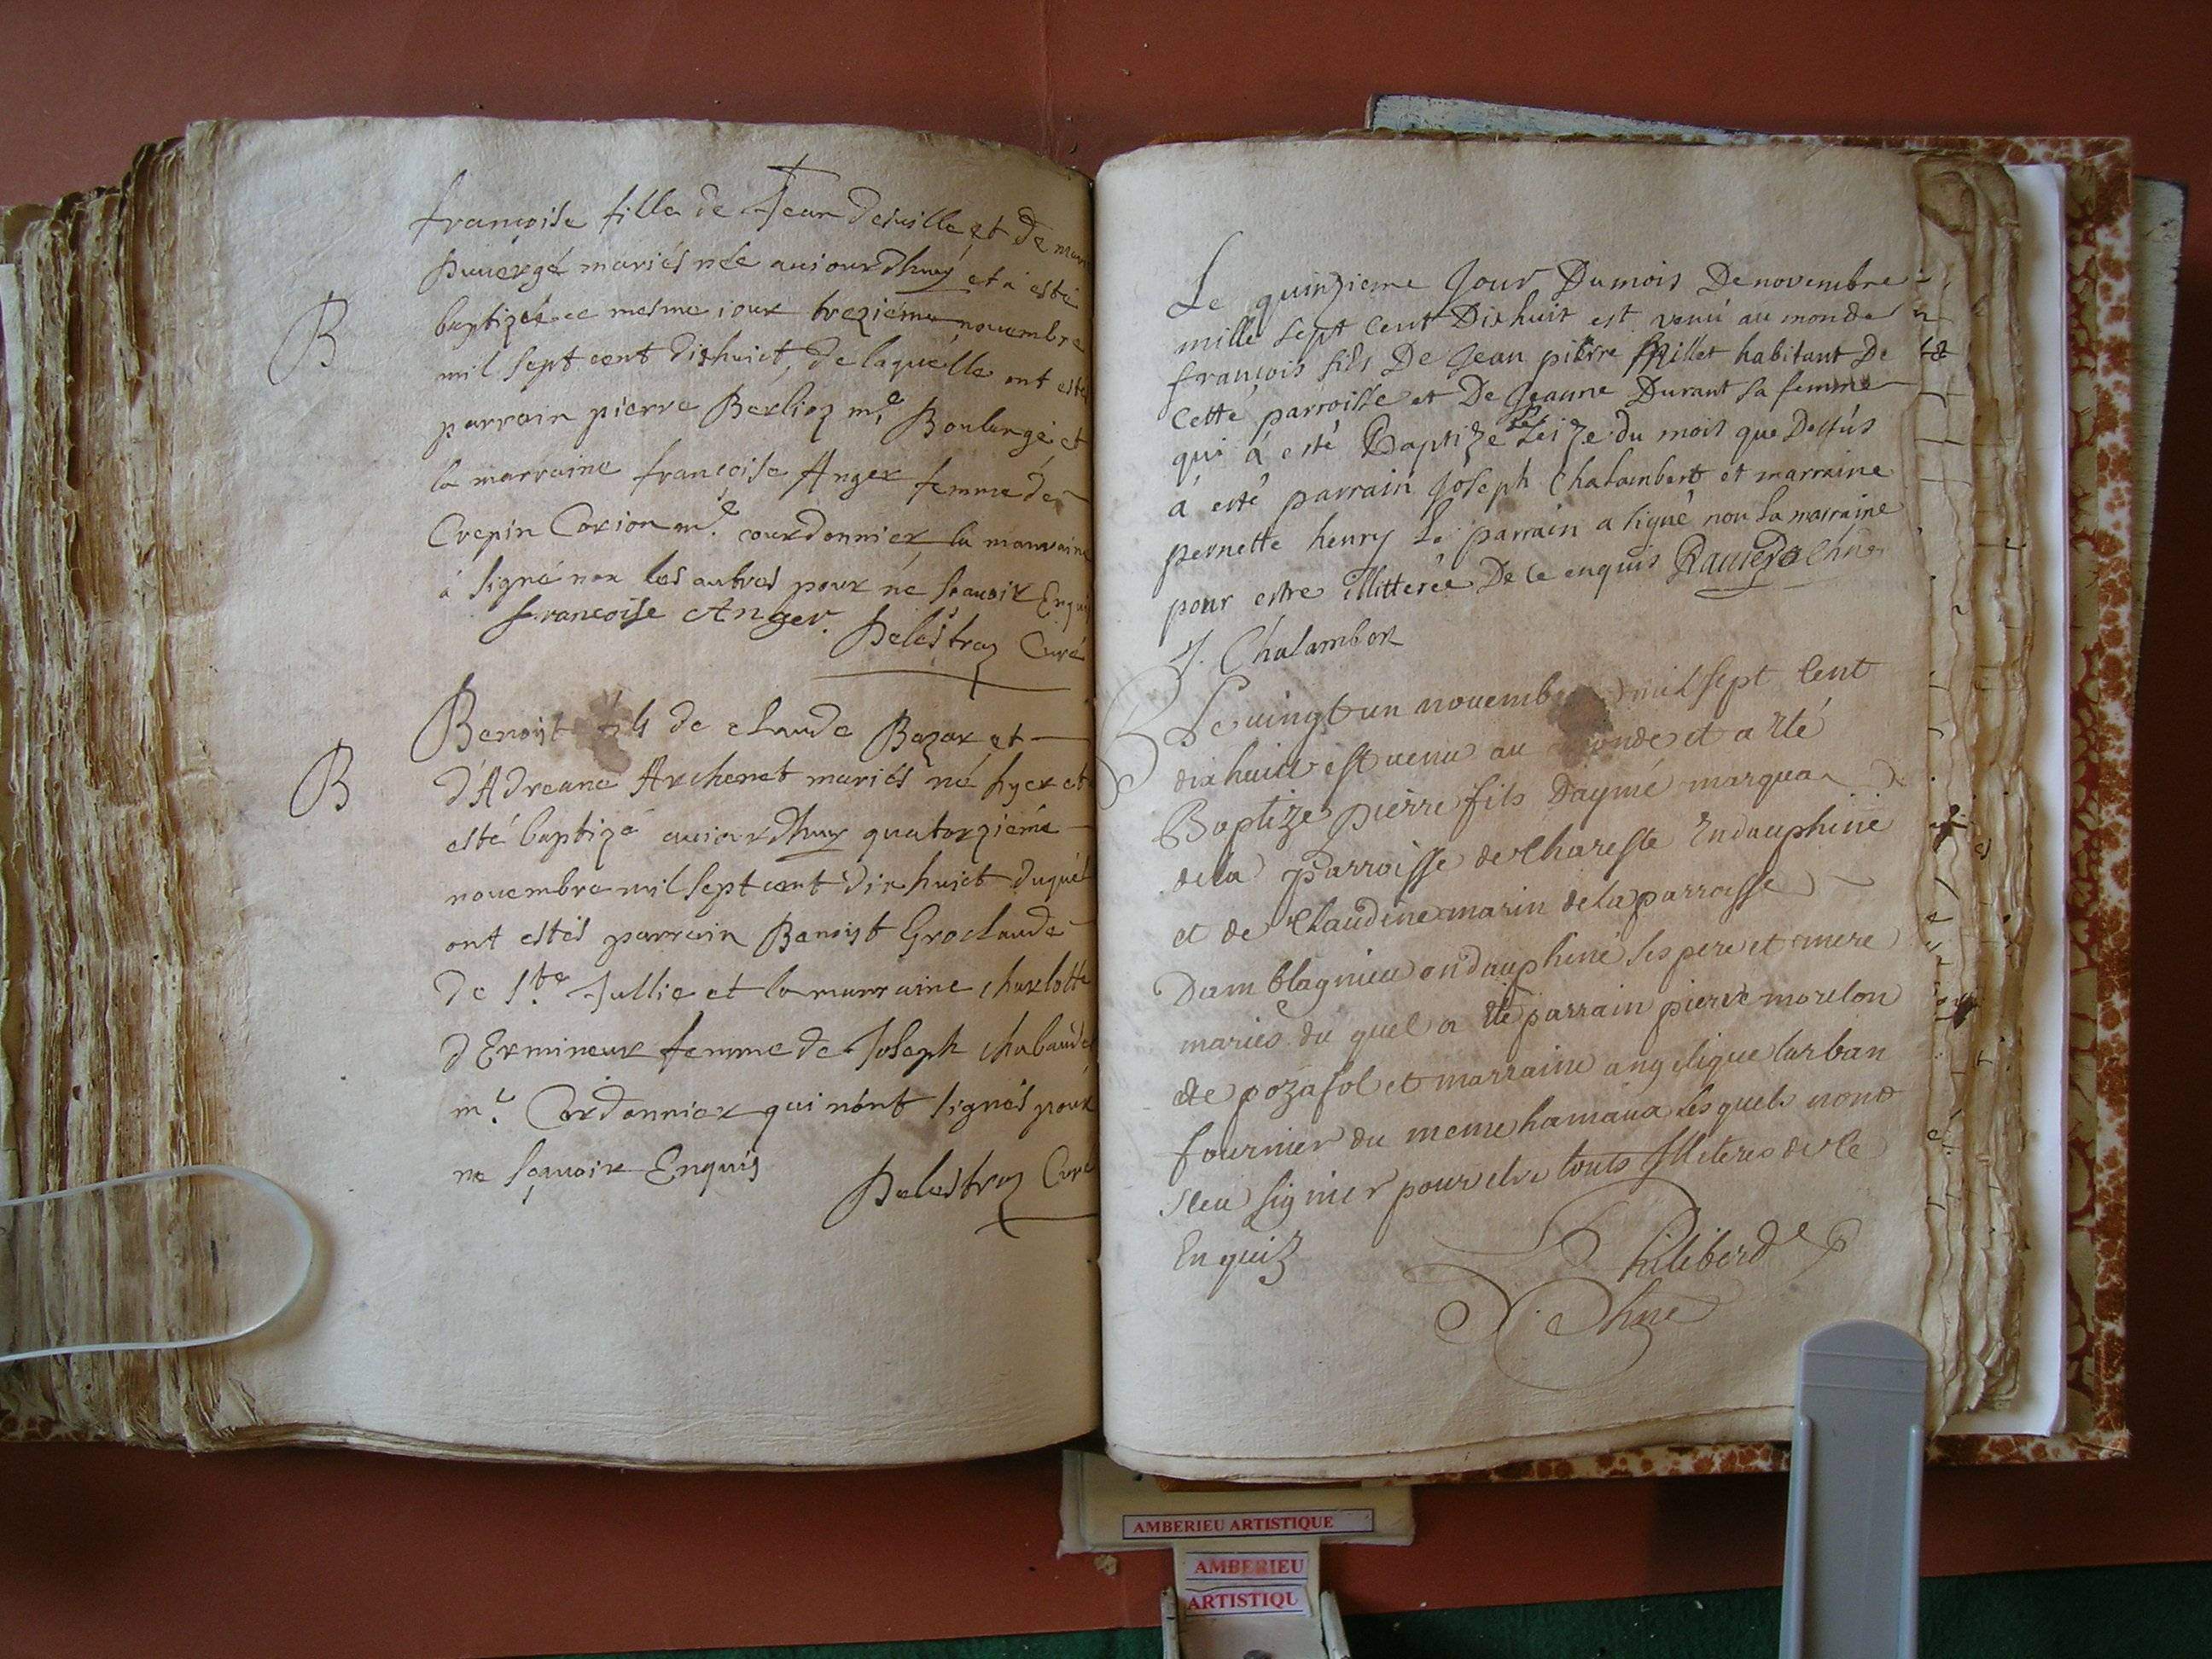 françoise fille de Jean deville et de mar
pauergé mariés née auiourdhuy et a esté
B
baptizée ce mesme iour treziéme nouembre
mil sept cent dixhuict, de laquélle ont estés
parrain pierre Berlioz me Boulangé, et
la marraine françoise Anger femme de
Crepin Corion me courdonnier la marraine
à signé non les autres pour ne scauoir Enquis
francoise Anger. Delestraz Curé
Benoist fils de claude Bazar et
B
d'Adreane Archenet mariés né hyer et
esté baptizé auiourdhuy quatorziéme
nouembre mil sept cent dix huict duquél
ont estés parrain Benoist Groclaude
de Ste Jullie et la marraine charlotte
d'Ermineur femme de Joseph chabaudet
me Cordonnier qui n'ont signés pour
ne sçauoir Enquis
Delestraz Curé
Le quinzieme Jour Du mois De novembre
mille sept Cent Dixhuit est venú au monde
françois fils De Jean pierre Millet habitant De
Cette parroisse et De Jeanne Durant sa femme
qui à esté Baptizé le seize du mois que Dessús
à esté parrain Joseph Chalambert et marraine
pernette henry Le parrain a signé non la marraine
pour estre illitterée De ce enquis
J. Chalambert
B
Le uingt un nouembre mil sept Cent
dix huict est uenu au monde et a été
Baptizé pierre fils Daymé marquar
dela parroisse de Chareste En dauphiné
et de Claudine marin de la parroisse
Dam blagnieu en dauphiné ses pere et mere
mariés du quel a été parrain pierre morelon
de pozafol et marraine angelique lurban
fournier du meme hamaux lesquels n'ont
sceu signier pour etre touts Illiteres de ce
En quiz
Philiberd
AMBERIEU ARTISTIQUE
AMBERIEU
ARTISTIQU